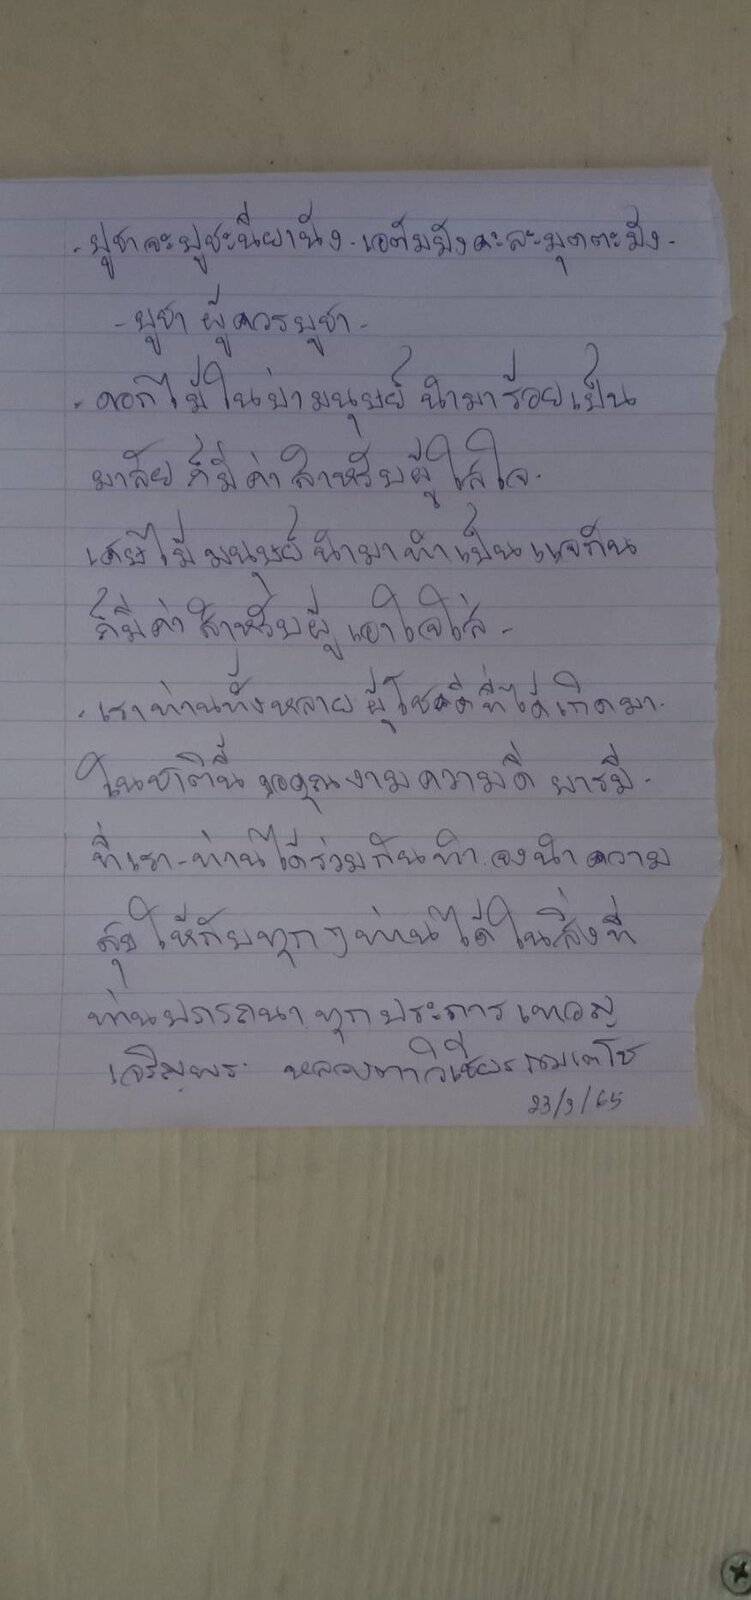 - ปูชาจะปูชะนียานัง - เอตัมมังคะละมุตตะมัง -
- บูชา ผู้ควรบูชา -
- ดอกไม้ในป่า มนุษย์ นำมาร้อยเป็น
มาลัย ก็มีค่า สำหรับผู้ใส่ใจ -
เศษไม้ มนุษย์ นำมาทำเป็นแจกัน
ก็มีค่า สำหรับผู้เอาใจใส่ -
- เราท่านทั้งหลาย ผู้โชคดีที่ได้เกิดมา -
ในชาตินี้ ขอคุณงามความดี บารมี -
ที่เรา - ท่านได้ร่วมกันทำ จงนำความ
สุข ให้กับทุกๆ ท่าน ได้ในสิ่งที่
ท่านปรารถนา ทุกประการ เทอญ
เจริญพร หลวงตาวิเชียร
23/9/65